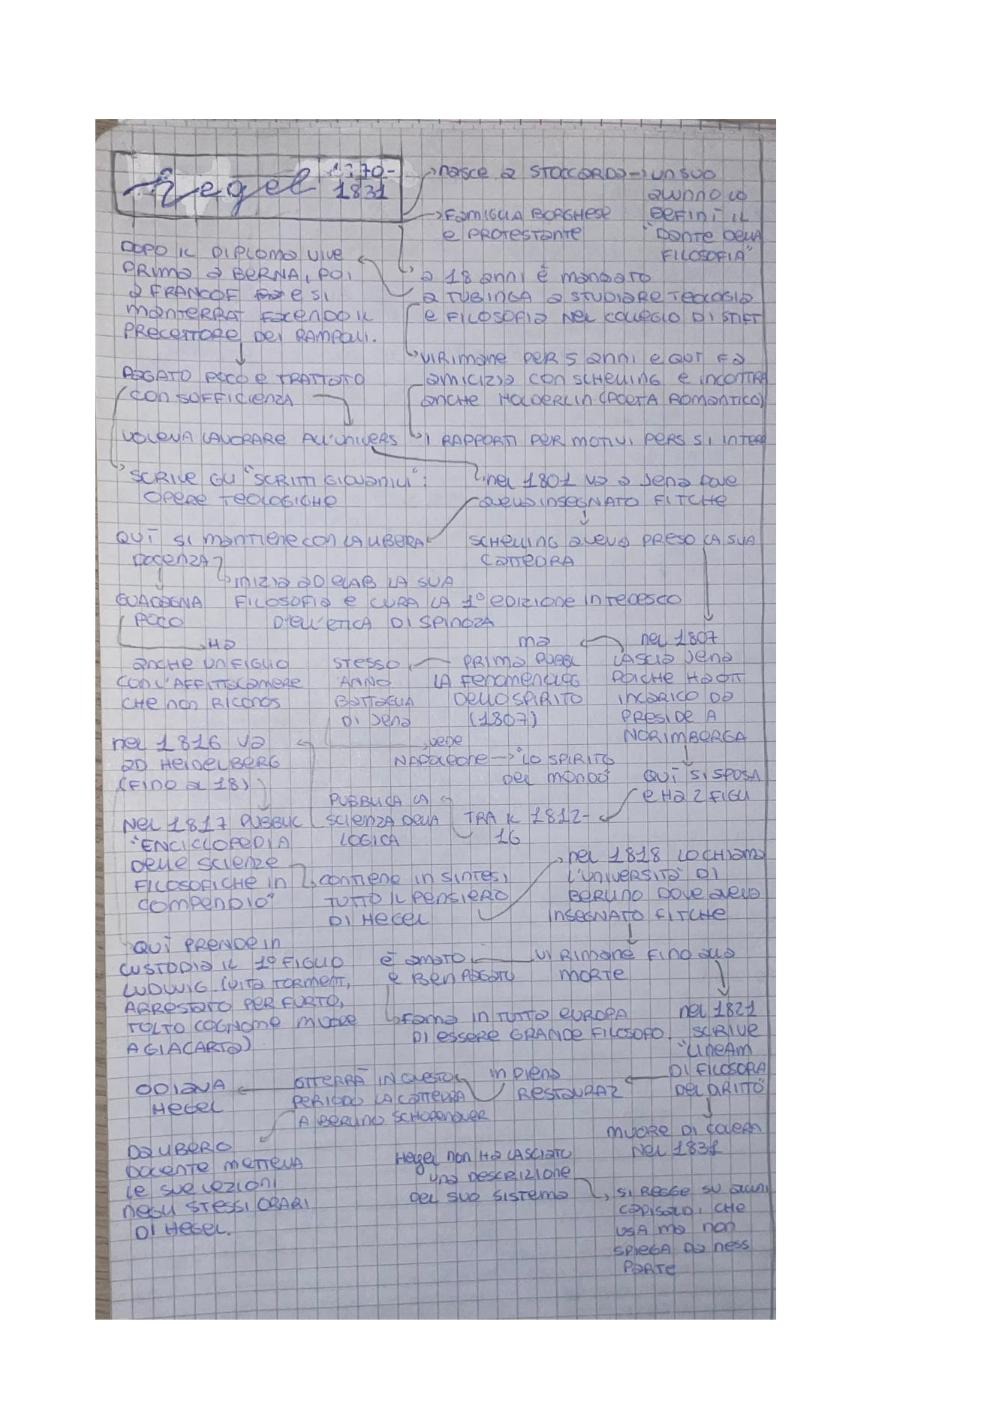 hegel 1770-
1831
nasce a STOCCARDA → UN SUO
ALUNNO LO
DEFINÌ IL
"DANTE DELLA
FILOSOFIA"
FAMIGLIA BORGHESE
E PROTESTANTE
a 18 anni È MANDATO
a TUBINGA a STUDIARE TEOLOGIA
E FILOSOFIA NEL COLLEGIO DI STIFT
VI RIMANE PER 5 anni E QUI FA
AMICIZIA CON SCHELLING E INCONTRA
ANCHE HOLDERLIN (POETA ROMANTICO)
I RAPPORTI PER MOTIVI PERS SI INTERR
DOPO IL DIPLOMA VIVE
PRIMA a BERNA, POI
a FRANCOF e SI
MANTERRÀ FACENDO IL
PRECETTORE DEI RAMPOLLI.
PAGATO POCO E TRATTATO
CON SUFFICIENZA
VOLEVA LAVORARE ALL'UNIVERS
SCRIVE GLI "SCRITTI GIOVANILI":
OPERE TEOLOGICHE
nel 1801 va a Jena dove
aveva INSEGNATO FITCHE
SCHELLING aveva PRESO LA SUA
CATTEDRA
QUI SI MANTIENE CON LA LIBERA
DOCENZA
INIZIA AD ELAB LA SUA
FILOSOFIA E CURA LA 1° EDIZIONE IN TEDESCO
DELL'ETICA DI SPINOZA
GUADAGNA
POCO
HA
ANCHE UN FIGLIO
CON L'AFFITTACAMERE
CHE NON RICONOS
nel 1807
LASCIA JENA
POICHE HA OTT
INCARICO DA
PRESIDE A
NORIMBERGA
MA
PRIMA PUBBL
LA FENOMENOLOG
DELLO SPIRITO
(1807)
STESSO
ANNO
BATTAGLIA
DI JENA
VEDE
NAPOLEONE → "LO SPIRITO
DEL MONDO"
QUI SI SPOSA
E HA 2 FIGLI
TRA IL 1812-
16
PUBBLICA LA
SCIENZA DELLA
LOGICA
nel 1816 VA
AD HEIDELBERG
(FINO a 18)
NEL 1817 PUBBLIC
"ENCICLOPEDIA
DELLE SCIENZE
FILOSOFICHE IN
COMPENDIO"
CONTIENE IN SINTESI
TUTTO IL PENSIERO
DI HEGEL
nel 1818 LO CHIAMA
L'UNIVERSITÀ DI
BERLINO DOVE AVEVA
INSEGNATO FITCHE
VI RIMANE FINO ALLA
MORTE
È AMATO
E BEN PAGATO
FAMA IN TUTTO EUROPA
DI ESSERE GRANDE FILOSOFO
QUI PRENDE IN
CUSTODIA IL 1° FIGLIO
LUDWIG (VITA TORMENT,
ARRESTATO PER FURTO,
TOLTO COGNOME MUORE
A GIACARTA)
nel 1821
SCRIVE
"LINEAM
DI FILOSOFIA
DEL DIRITTO"
IN PIENA
RESTAURAZ
OTTERRÀ IN QUESTO
PERIODO LA CATTEDRA
A BERLINO SCHOPENAUER
ODIAVA
HEGEL
DA LIBERO
DOCENTE METTEVA
LE SUE LEZIONI
NEGLI STESSI ORARI
DI HEGEL.
MUORE DI COLERA
NEL 1831
Hegel non HA LASCIATO
UNA DESCRIZIONE
DEL SUO SISTEMA
SI REGGE SU ALCUNI
CAPISALDI, CHE
USA MA NON
SPIEGA DA NESS
PARTE